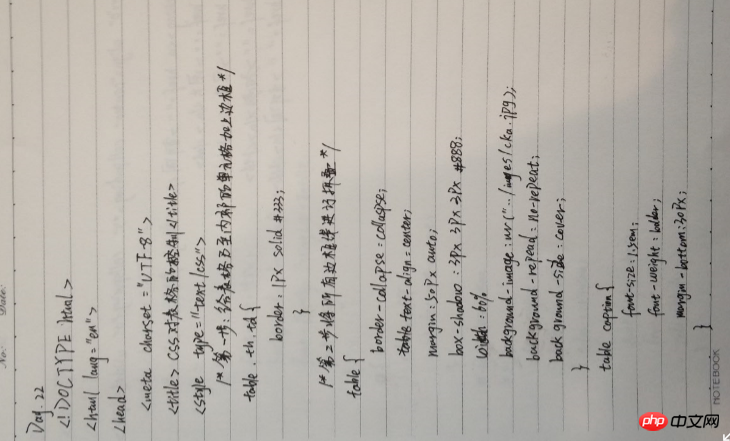 No:
Date:
Day 22
<!DOCTYPE html>
<html lang="en">
<head>
<meta charset="UTF-8">
<title>Css对表格的控制</title>
<style type="text/css">
/*第一步:给表格以至内部的单元格加上边框*/
table.th.td{
border:1px solid #333;
}
/*第二步将所有边框线进行折叠*/
table{
border-collapse=collapse;
text-align=center;
margin:50px auto;
box-shadow:3px 3px 3px #888;
width:60%
background-image:ur("../images/cka.jpg);
background-repead=no-repeat;
background-size:cover;
}
table caption{
font-size:1.5em;
font-weight:bolder;
margin-bottom:30px;
}
NOTEBOOK
php中文网